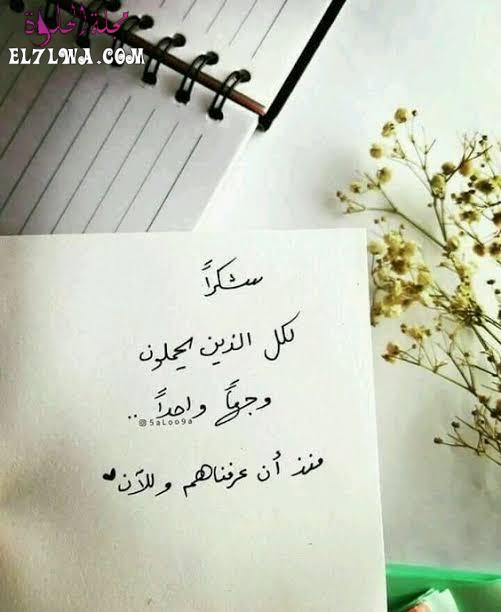 مجلة الحلوة
EL7LWA.COM
شكراً
لكل الذين يحملون
وجهاً واحداً ..
5aLoo9a
منذ أن عرفناهم وللآن ♥